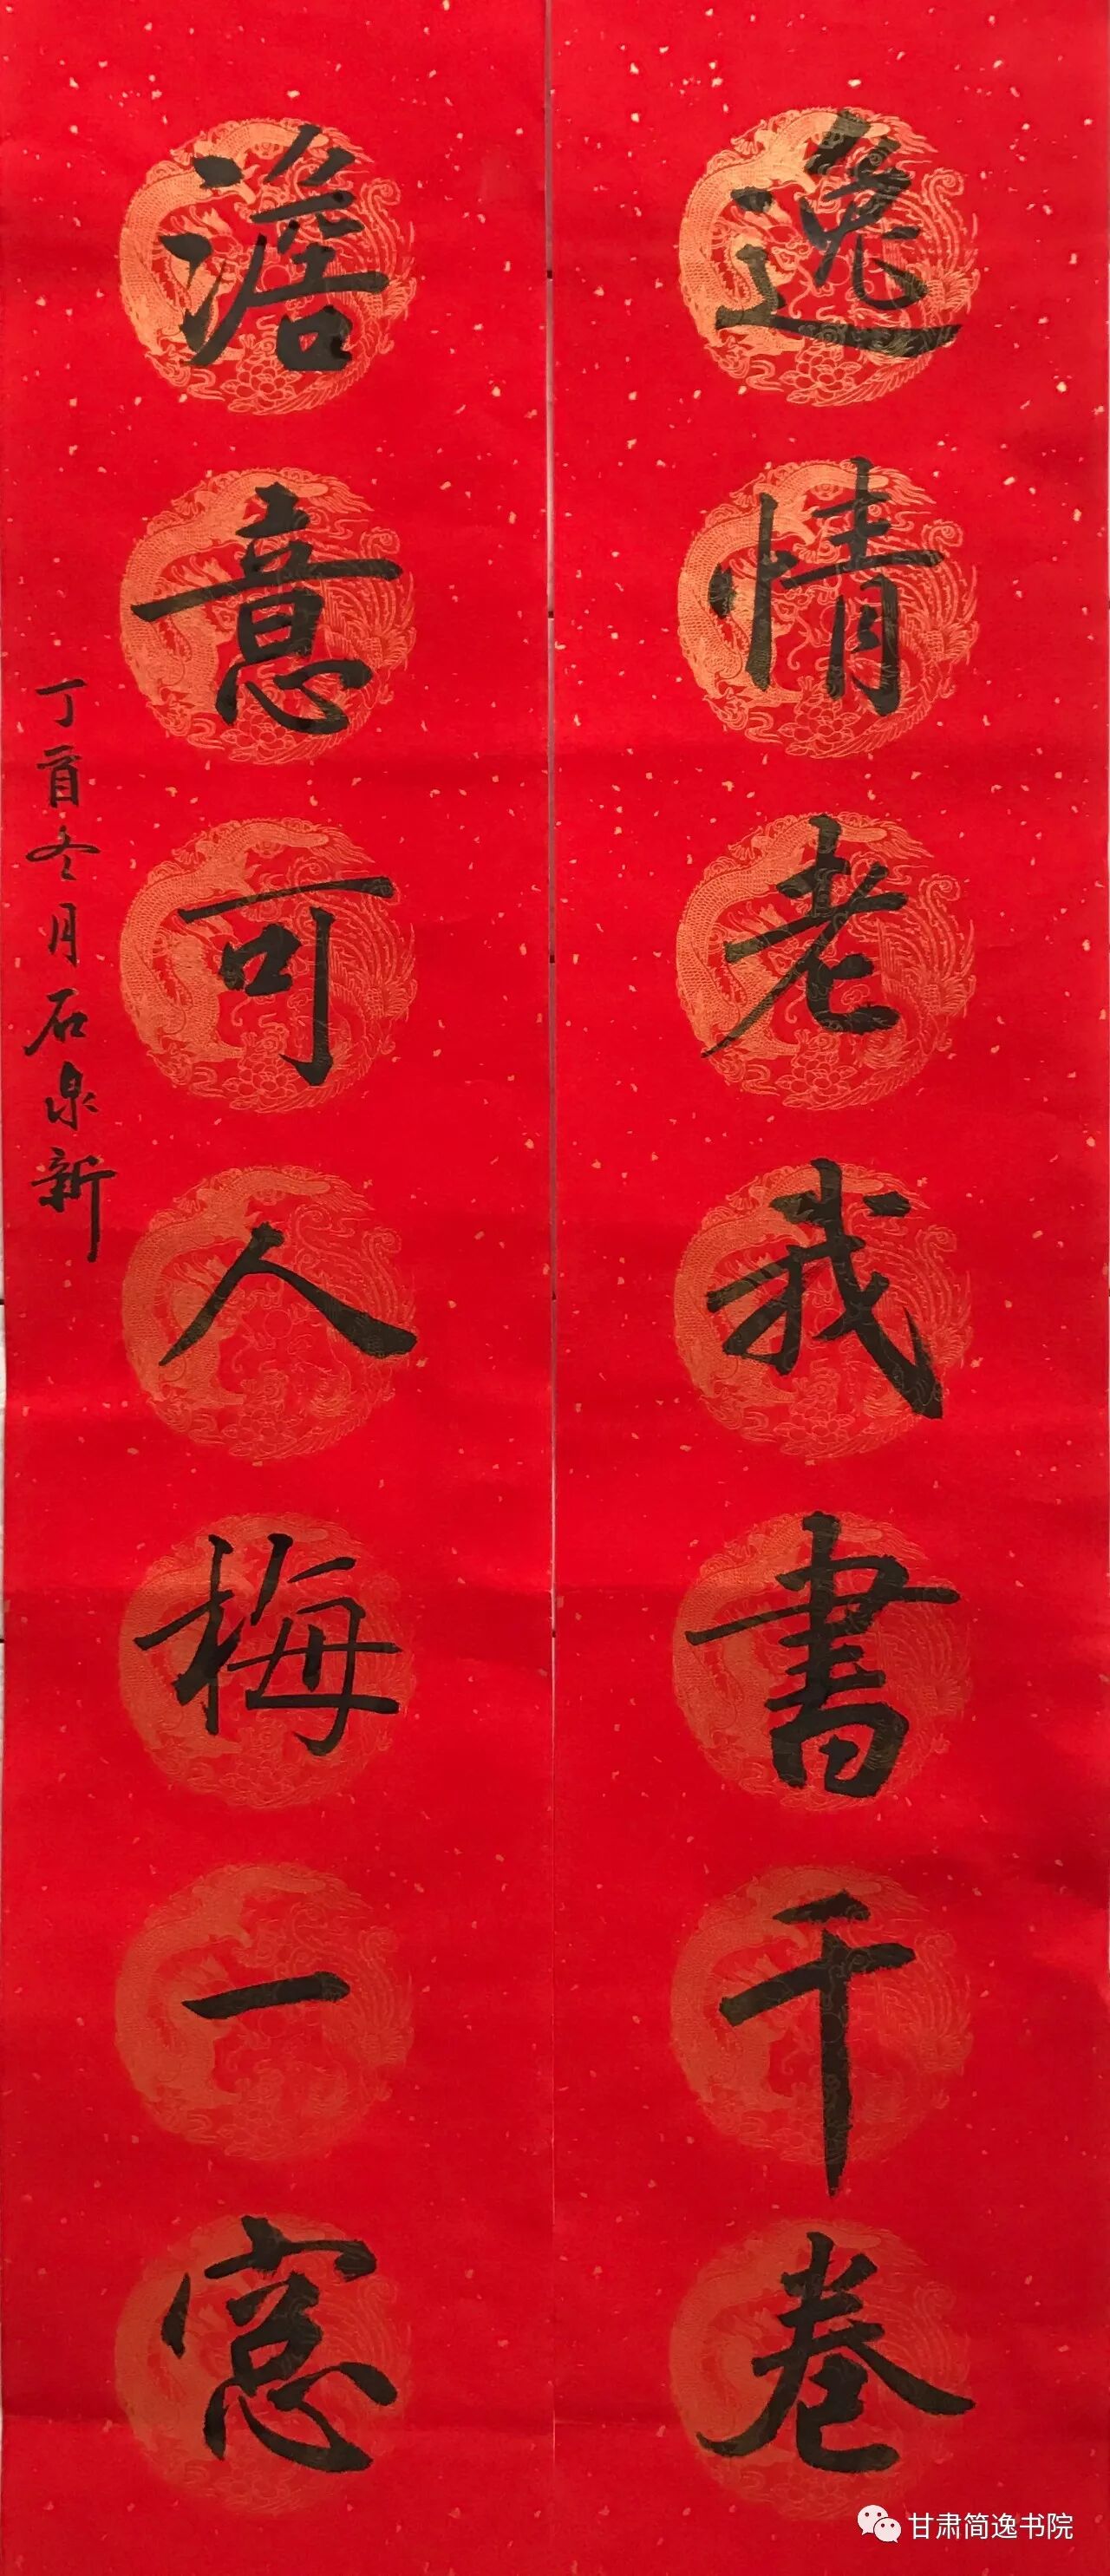 逸情老我書千卷
澹意可人梅一窓
丁酉冬月石泉新
甘肃简逸书院